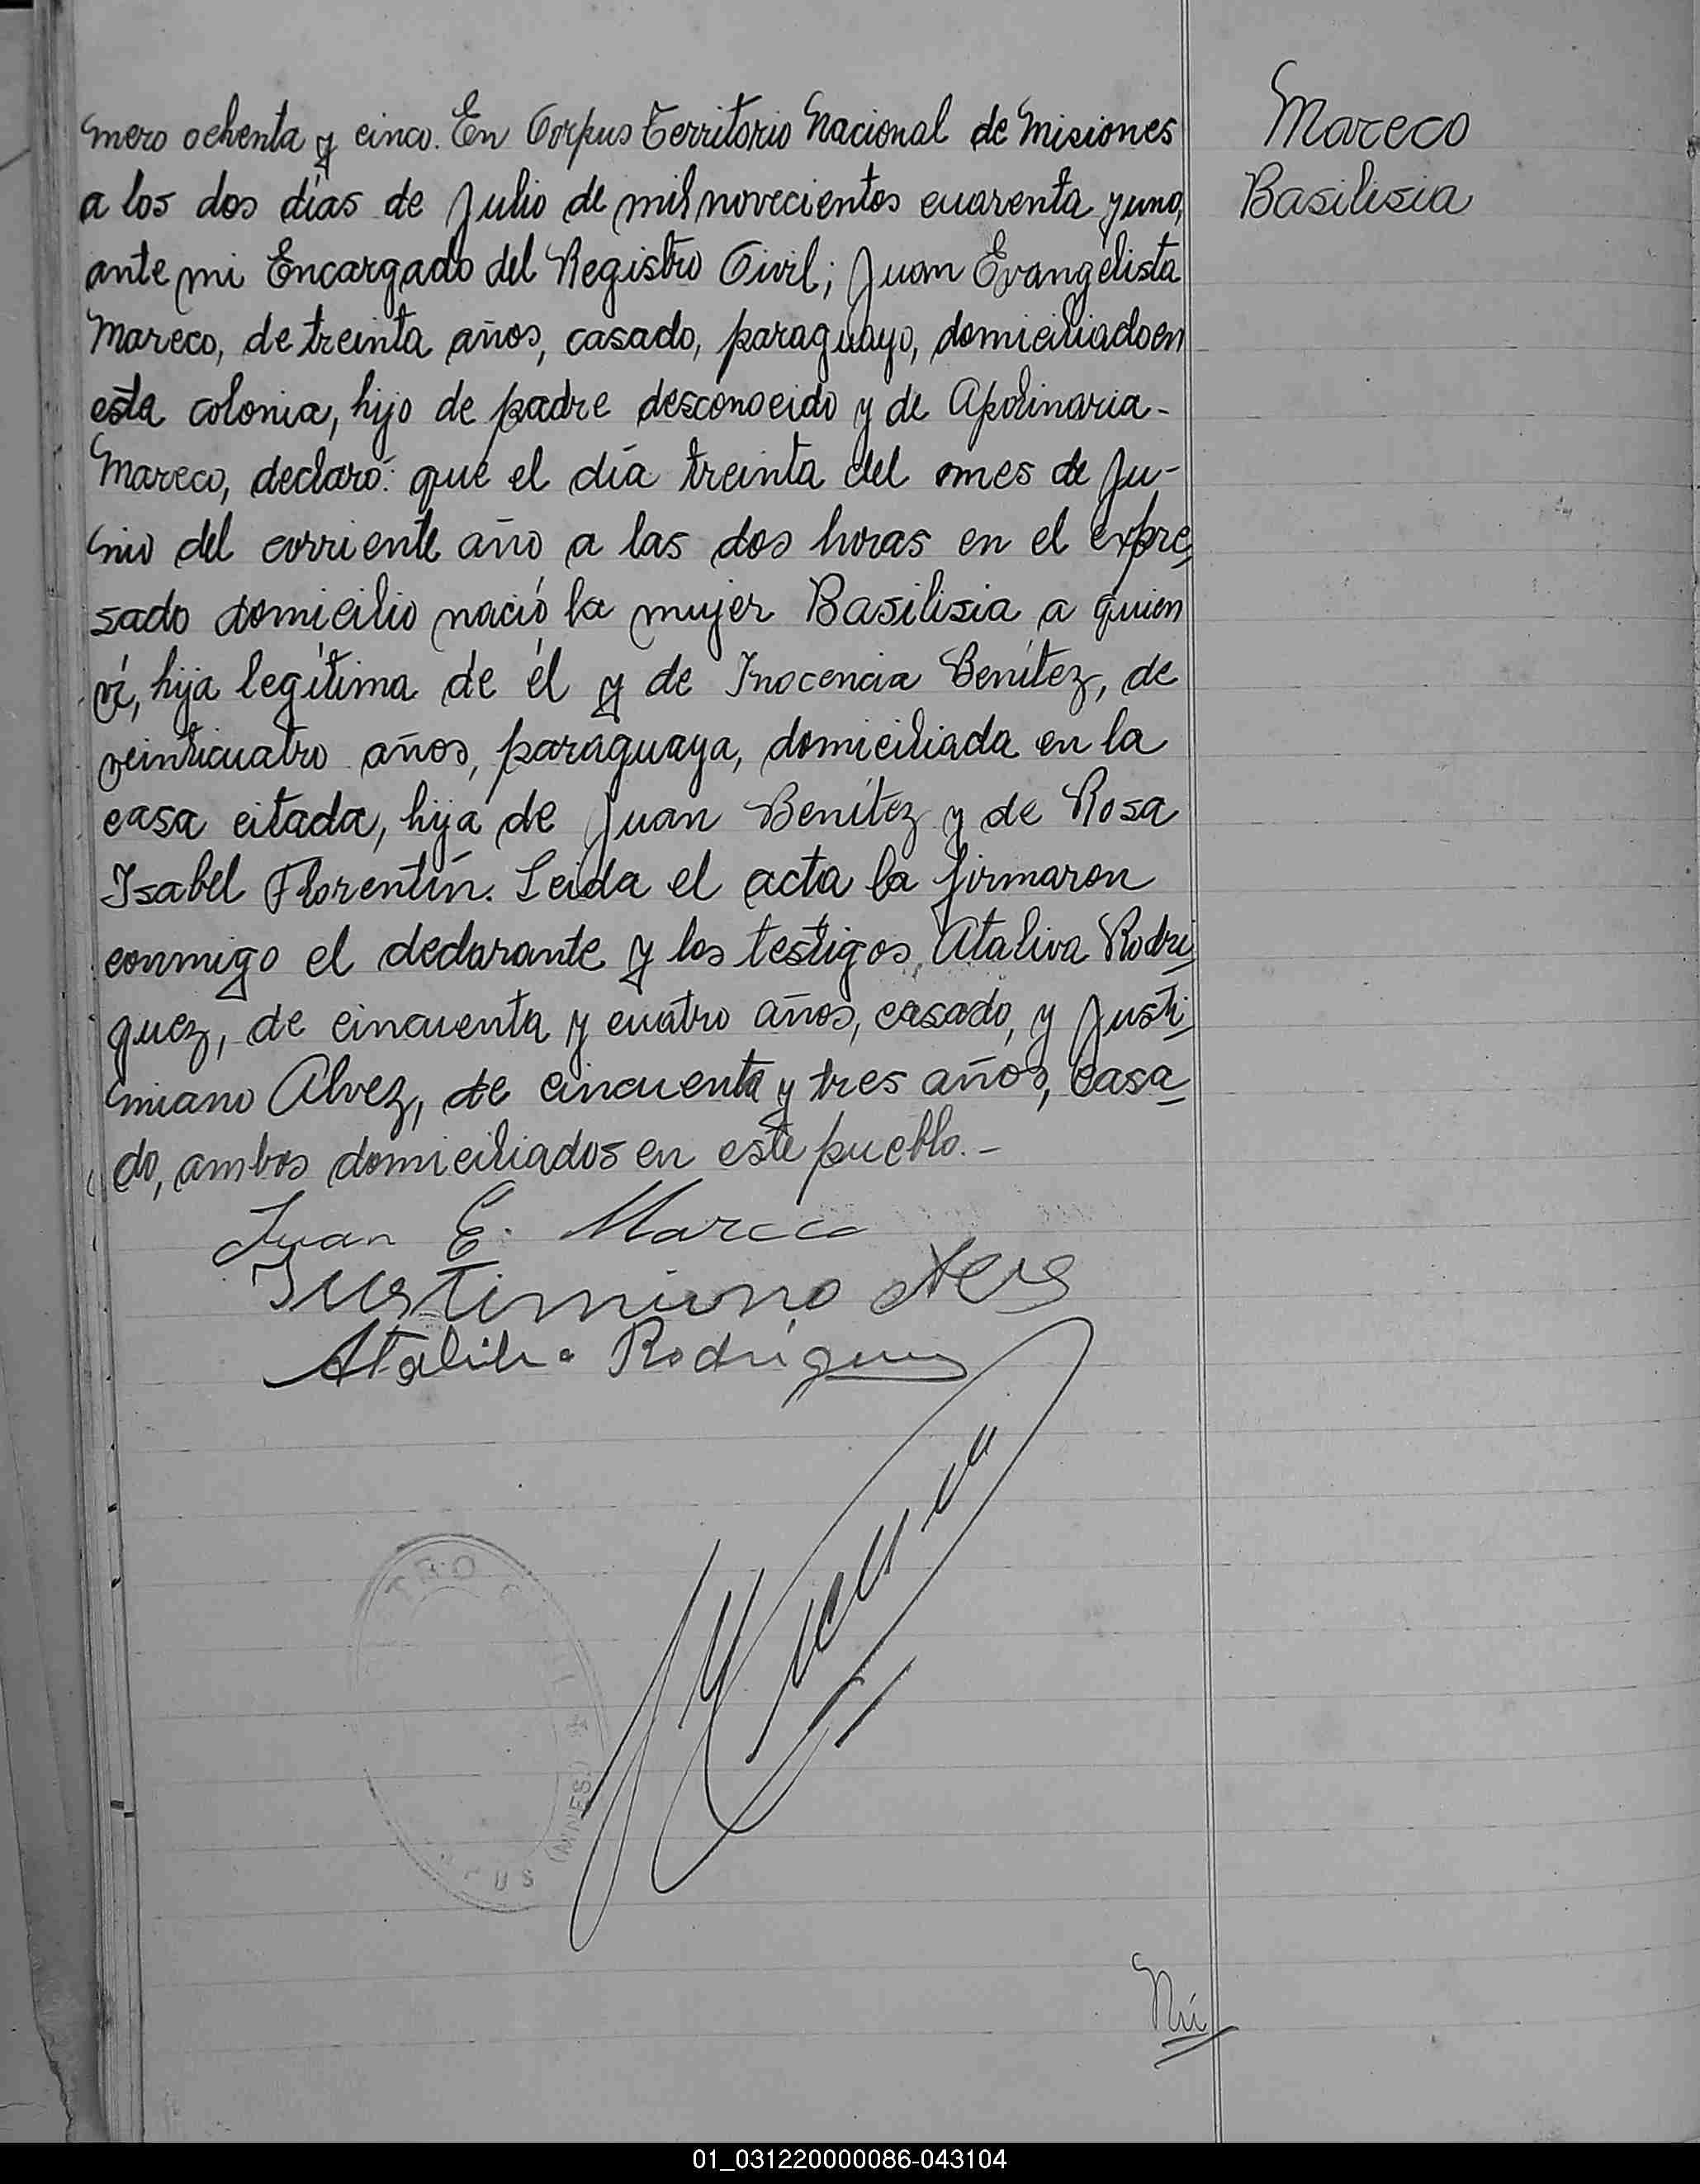 mero ochenta y cinco. En Corpus Territorio Nacional de Misiones
a los dos días de Julio de mil novecientos cuarenta y uno,
ante mi Encargado del Registro Civil; Juan Evangelista
Mareco, de treinta años, casado, paraguayo, domiciliado en
esta colonia, hijo de padre desconocido y de Apolinaria-
Mareco, declaró: que el día treinta del mes de Ju-
nio del corriente año a las dos horas en el expre-
sado domicilio nació la mujer Basilisia a quien
ví, hija legítima de él y de Inocencia Benítez, de
veinticuatro años, paraguaya, domiciliada en la
casa citada, hija de Juan Benítez y de Rosa
Isabel Florentín. Leida el acta la firmaron
conmigo el declarante y los testigos, Ataliva Rodri-
guez, de cincuenta y cuatro años, casado, y Justi-
niano Alvez, de cincuenta y tres años, casa-
do, ambos domiciliados en este pueblo.-
Mareco
Basilisia
Juan E. Mareco
Justiniano
Rodriguez
TRO C IL
(MNES.)
PUS
Nú
01_031220000086-043104